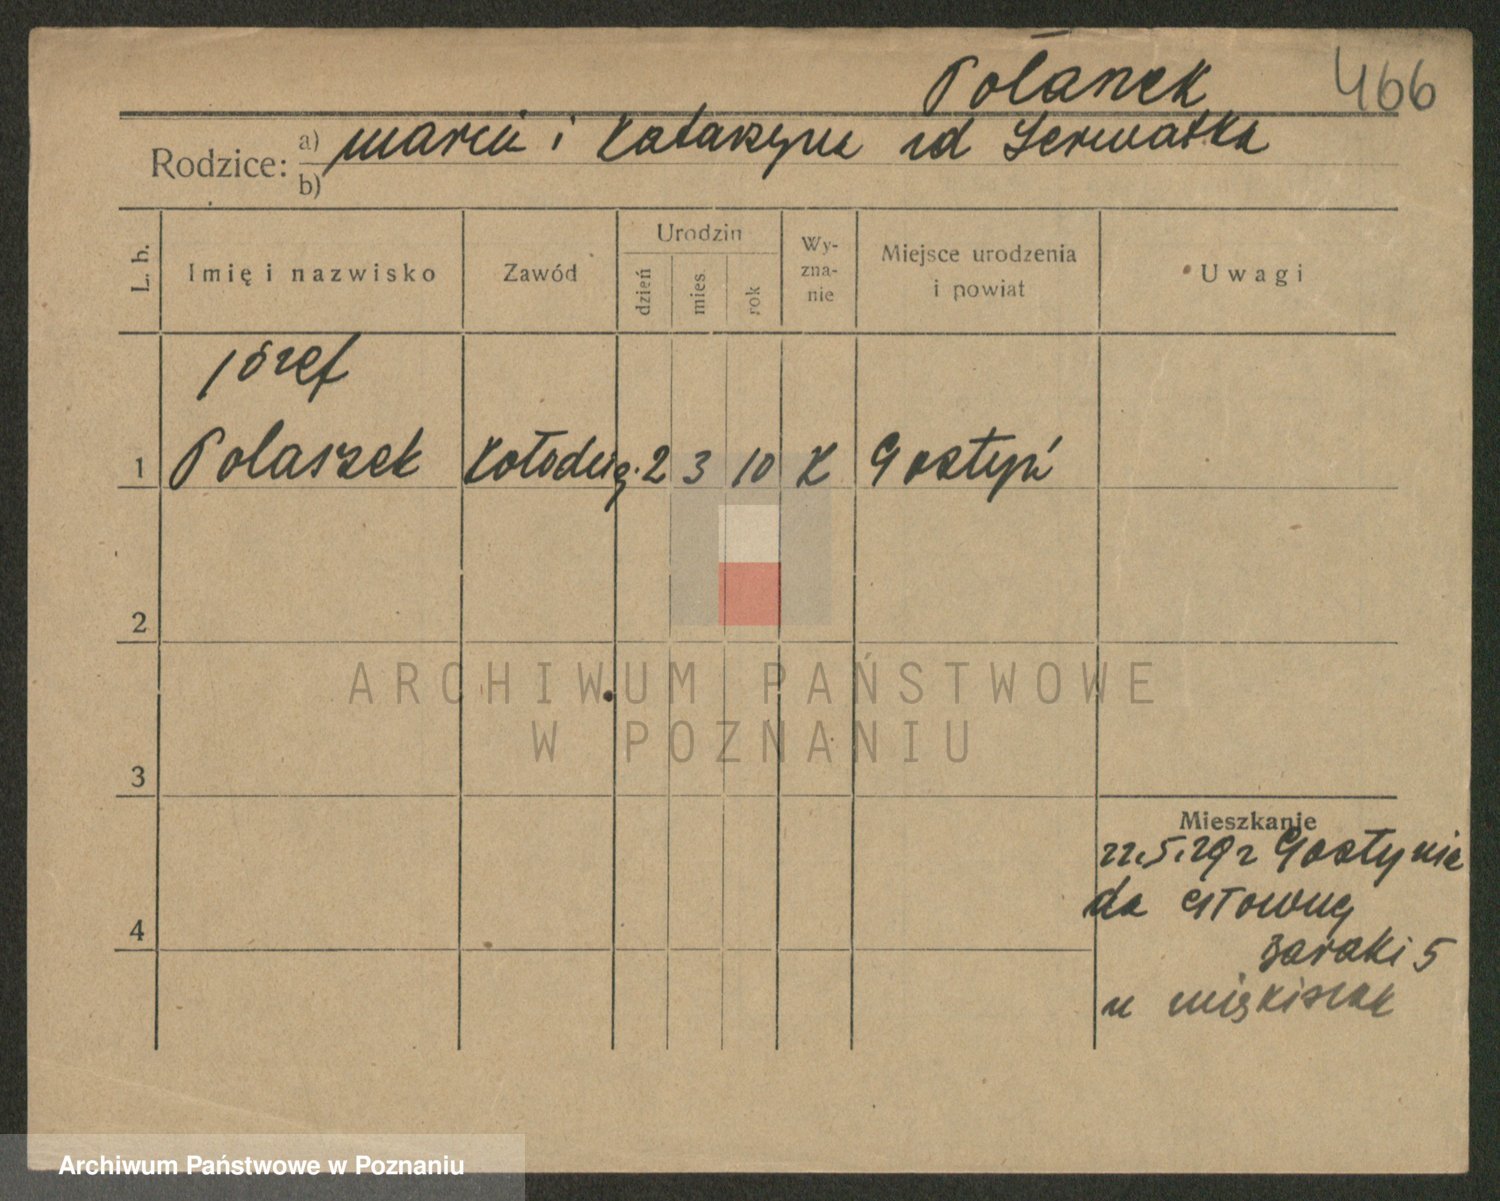 Polanek 466
Rodzice: a) Marcin i Katarzyna zd Serwatka
b)
L. b. Imię i nazwisko Zawód Urodzin dzień mies. rok Wy-zna-nie Miejsce urodzenia i powiat Uwagi
Józef
1 Polaszek Kołodziej. 2 3 10 K Gostyń
2
ARCHIWUM PAŃSTWOWE
W POZNANIU
3
Mieszkanie
22.5.29 z Gostynia
do
4
baraki 5
u
Archiwum Państwowe w Poznaniu